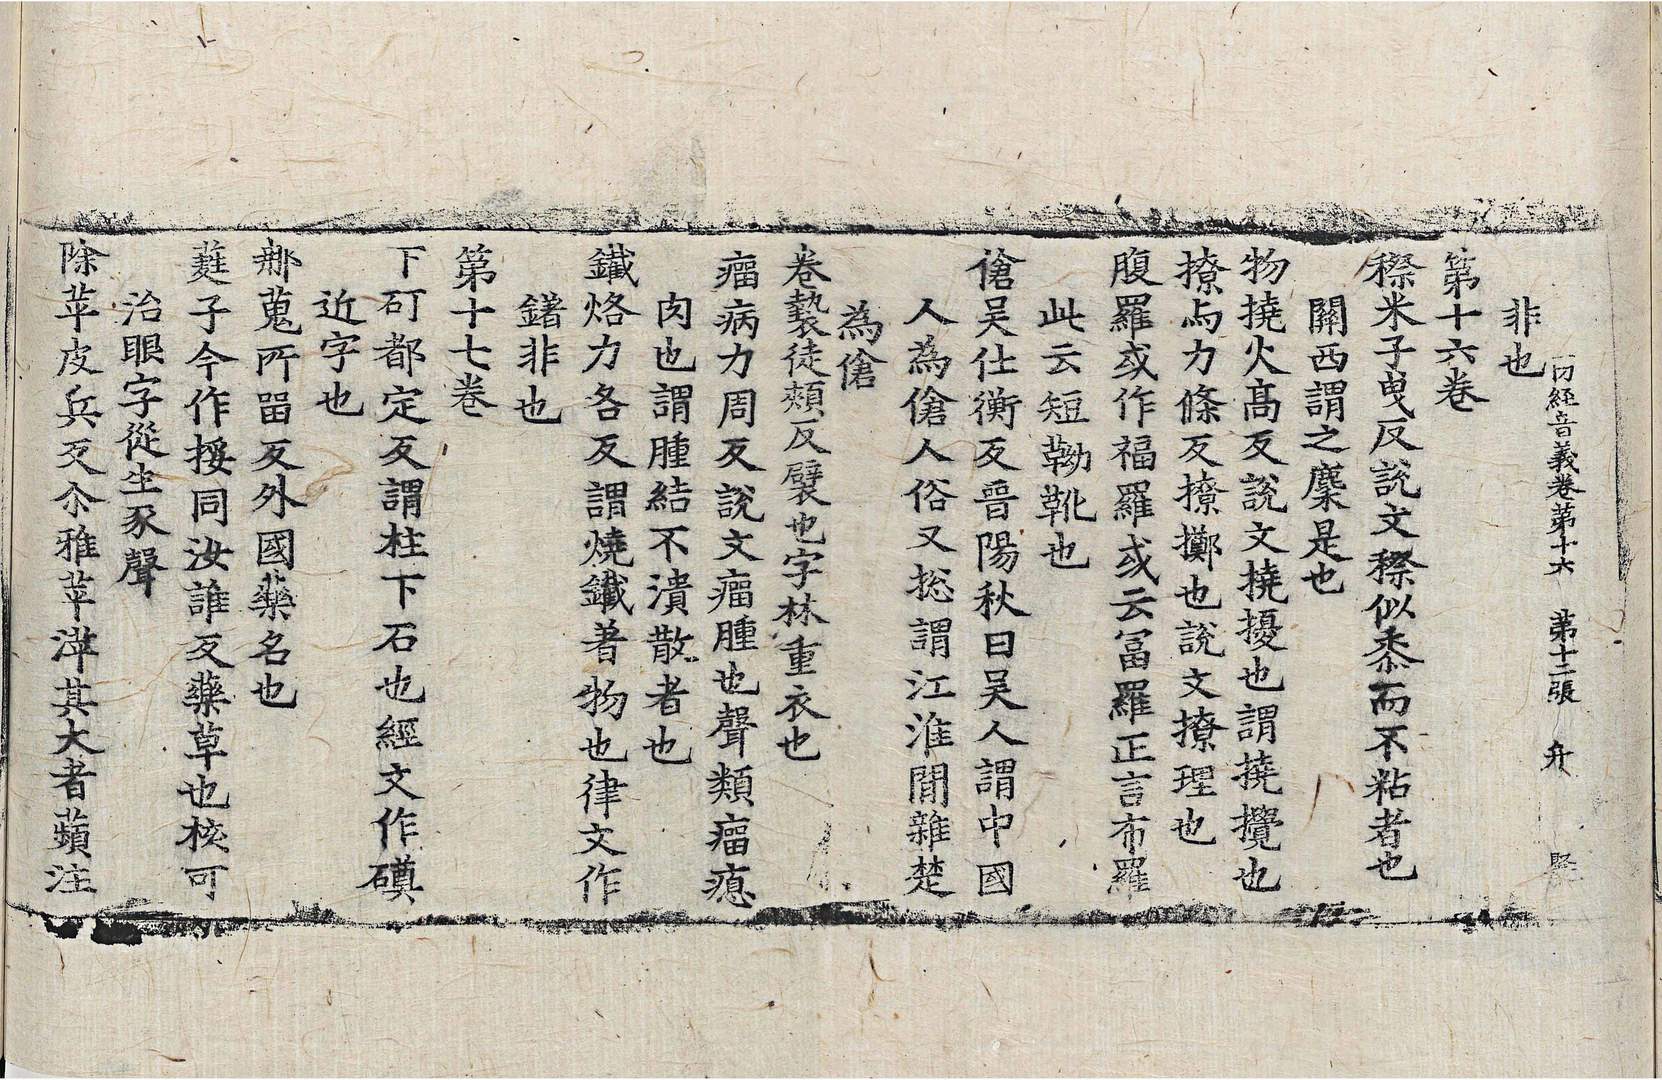 非也
一切經音義卷第十六 第十二張 弁
第十六卷
穄米子曳反說文穄似黍而不粘者也
關西謂之穈是也
物撓火高反說文撓擾也謂撓攪也
撩与力條反撩擲也說文撩理也
腹羅或作福羅或云冨羅正言布羅
此云短靿靴也
傖吴仕衡反晋陽秋曰吴人謂中國
人為傖人俗又捴謂江淮閒雜楚
為傖
卷褺徒頰反襞也字林重衣也
瘤病力周反說文瘤腫也聲類瘤瘜
肉也謂腫結不潰散者也
鐵烙力各反謂燒鐵著物也律文作
鐯非也
第十七卷
下矴都定反謂柱下石也經文作磸
近字也
郍蒐所畄反外國藥名也
蕤子今作桵同汝誰反藥草也核可
治眼字從生豕聲
除苹皮兵反尒雅苹蓱其大者蘋注